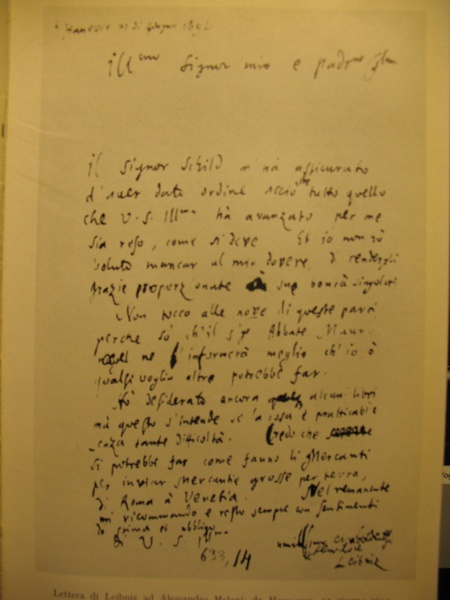 Hanover
Ill^mo Signor mio e padrne
il Signor Schild m'hà assicurato
d'aver dato ordine acciò tutto quello
che V.S. Ill^ma hà avanzato per me
sia reso, come si deve Et io non hò
voluto mancar al mio dovere, di rendergli
grazie proporzionate à sue bontà singolari
Non tocco alle nove di queste parti
perche sò ch'il sig^r Abbate Mauro
ne l'informerà meglio ch'io ò
qualsivoglia altro potrebbe far.
Hò desiderato ancora alcuni libri
mà questo s'intende se la cosa è pratticabile
senza tante difficoltà. Credo che
si potrebbe far come fanno li Mercanti
per inviar mercantie grosse per terra,
di Roma à Venetia. Nel remanente
mi ricommando e resto sempre con sentimenti
di V. S. Ill^ma
Leibniz
633,14
Lettera di Leibniz ad Alessandro